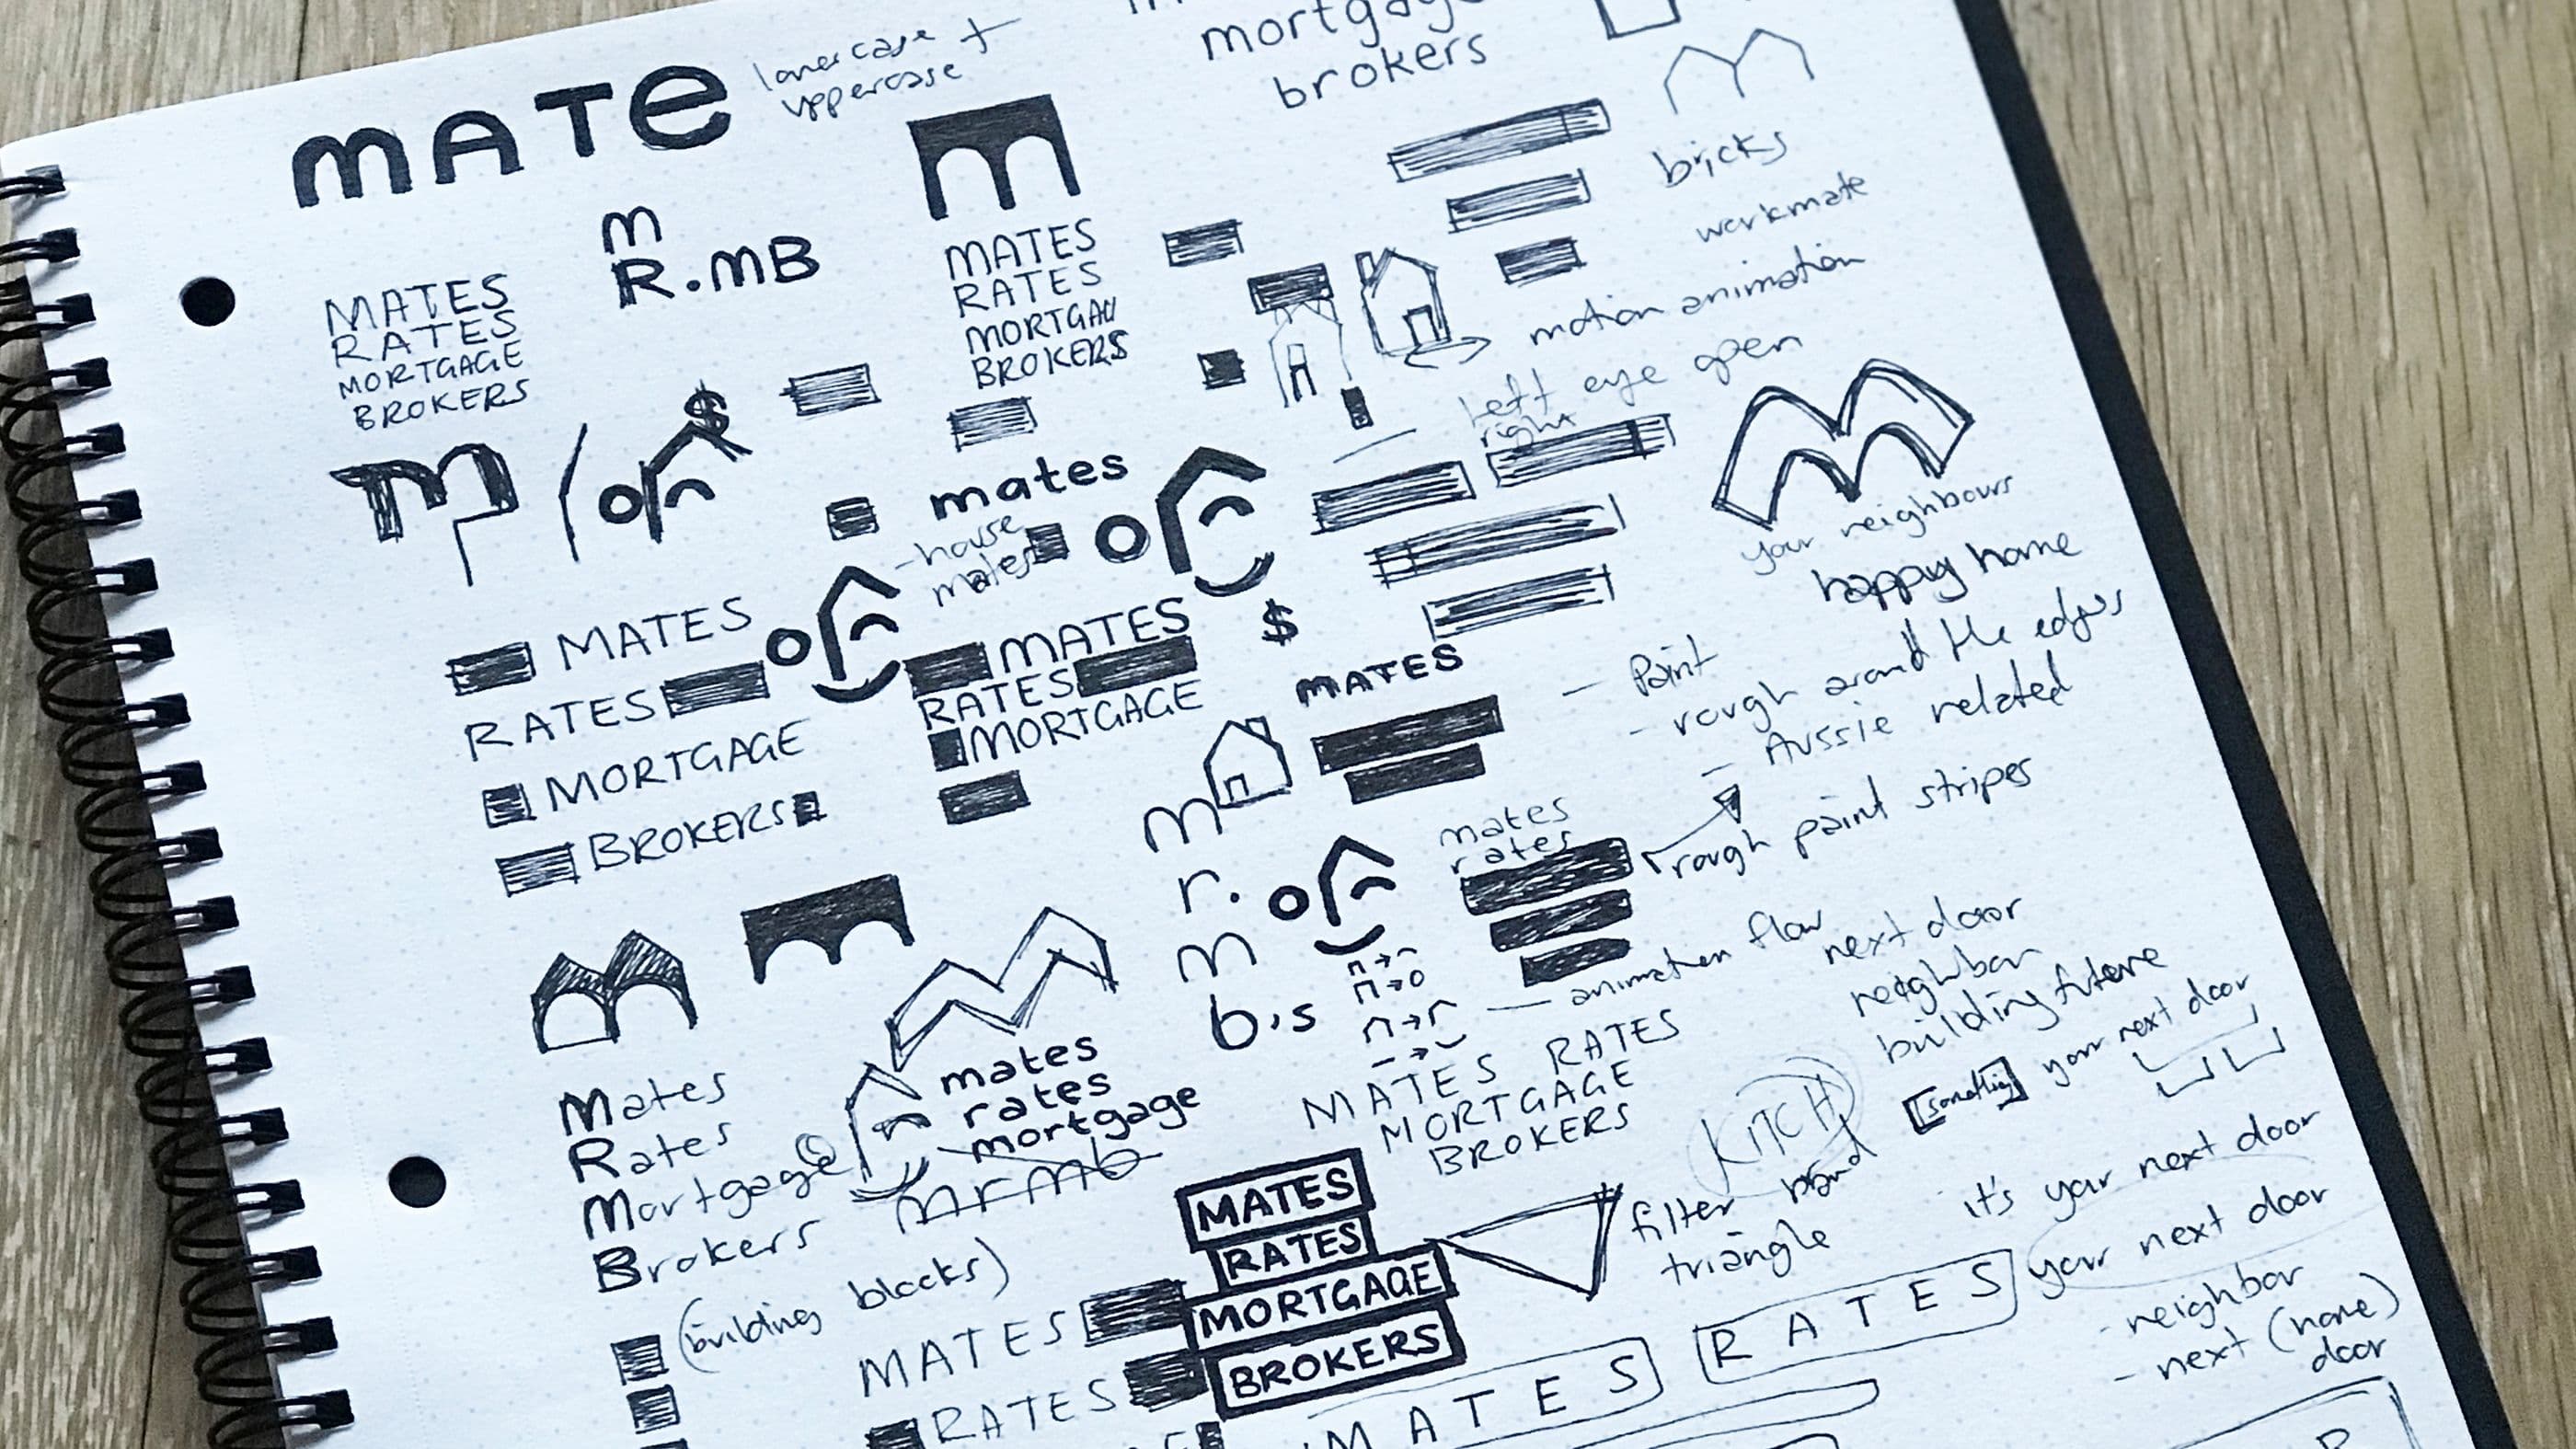 mortgage
brokers
MATE
lowercase +
uppercase
m
R.MB
MATES
RATES
MORTGAGE
BROKERS
m
MATES
RATES
MORTGAG
BROKERS
bricks
workmate
motion animation
left eye open
right
m
$
mates
- house
mates
your neighbours
happy home
MATES
RATES
MORTGAGE
BROKERS
MATES
RATES
MORTGAGE
$
MATES
- Paint
- rough around the edges
- Aussie related
rough paint stripes
m
r.
m
b.s
mates
rates
— animation flow
next door
neighbor
building future
[something] your next door
Mates
Rates
Mortgage
Brokers
mates
rates
mortgage
mrmb
MATES RATES
MORTGAGE
BROKERS
KITCH
it's your next door
your next door
- neighbor
- next (name)
door
filter
triangle
MATES
RATES
MORTGAGE
BROKERS
(building blocks)
MATES
RATES
MATES
RATES